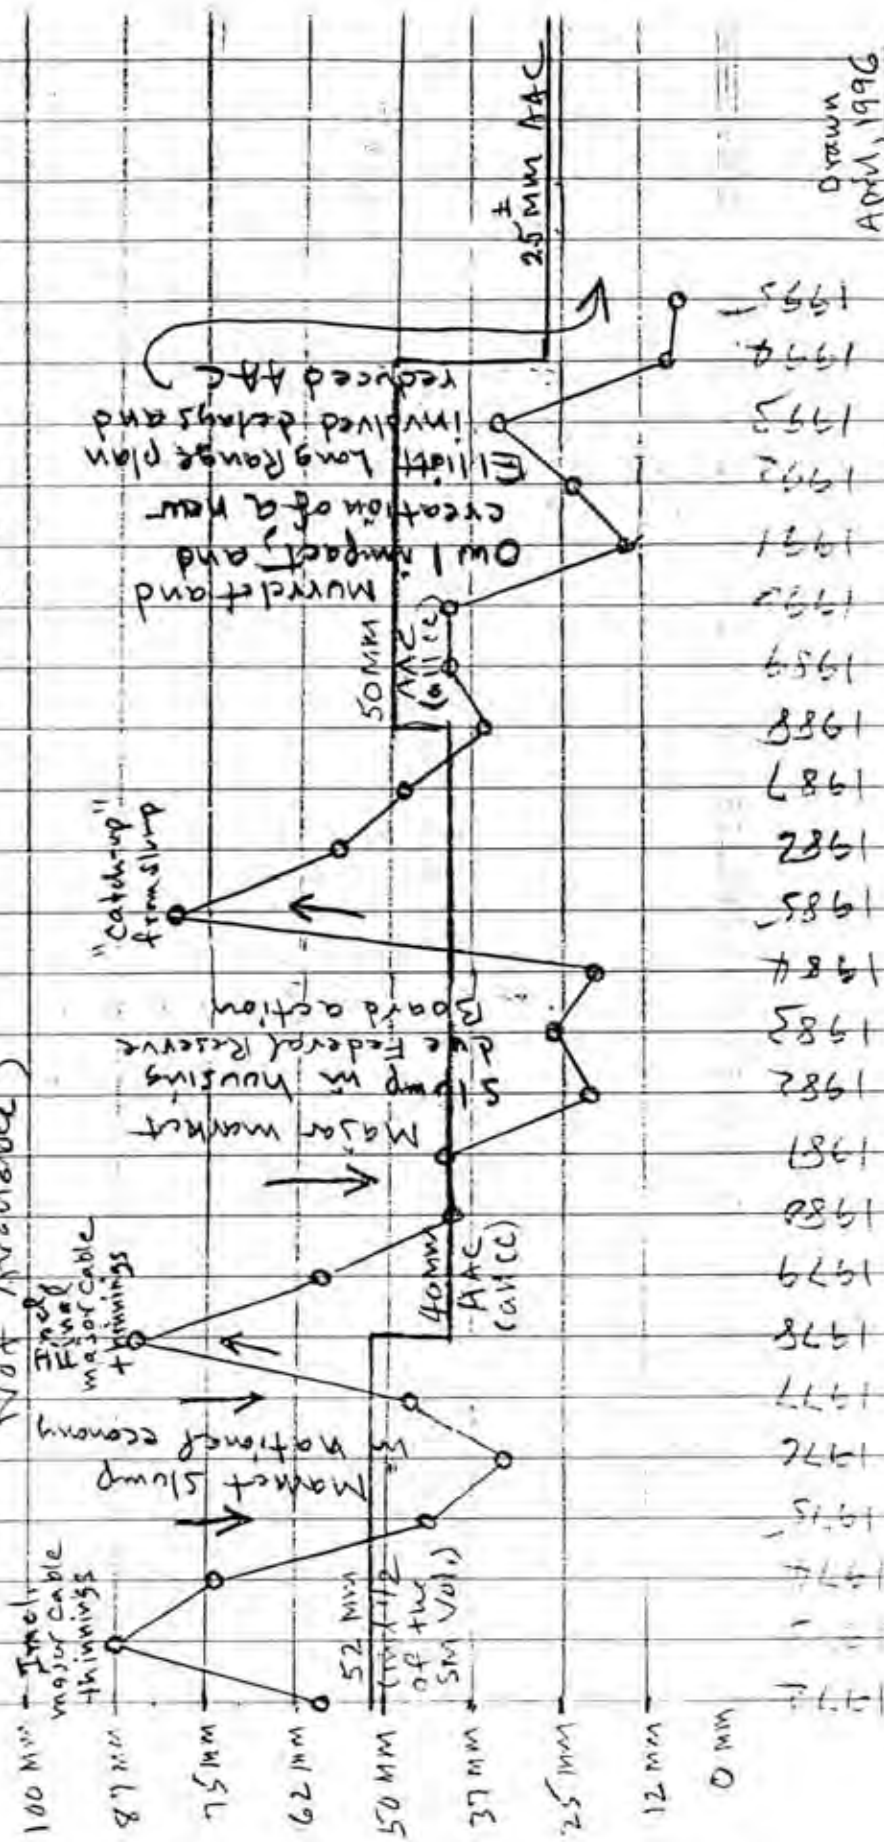 Not Available)
100 MM
87 MM
75 MM
62 MM
50 MM
37 MM
25 MM
12 MM
0 MM
Incl.
major cable
thinnings
52 MM
of the
SM Vol.)
Market Slump
in National economy
Incl
Final
major cable
thinnings
40MM
AAC
(all CC)
Major market
slump in housing
due Federal Reserve
Board action
"Catch-up"
from slump
50MM
AAC
(all CC)
Murrelet and
Owl impact, and
creation of a new
Elliott Long Range plan
involved delays and
reduced AAC
25 ± MM AAC
1974
1975
1976
1977
1978
1979
1980
1981
1982
1983
1984
1985
1987
1988
1989
1991
1992
1993
1994
1995
Drawn
April, 1996